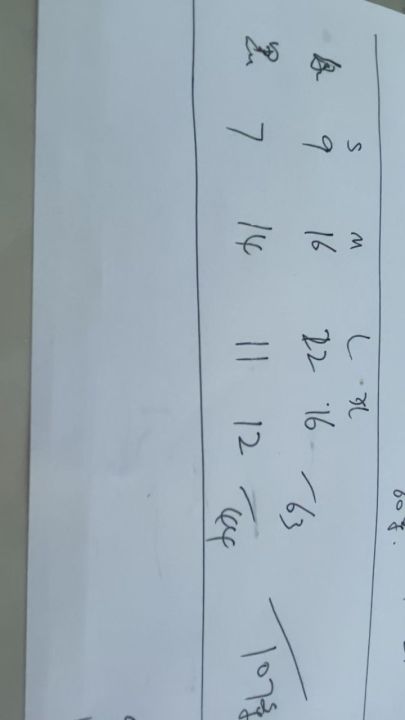 S M L XL
9 16 22 16 — 63
7 14 11 12 — 44
107